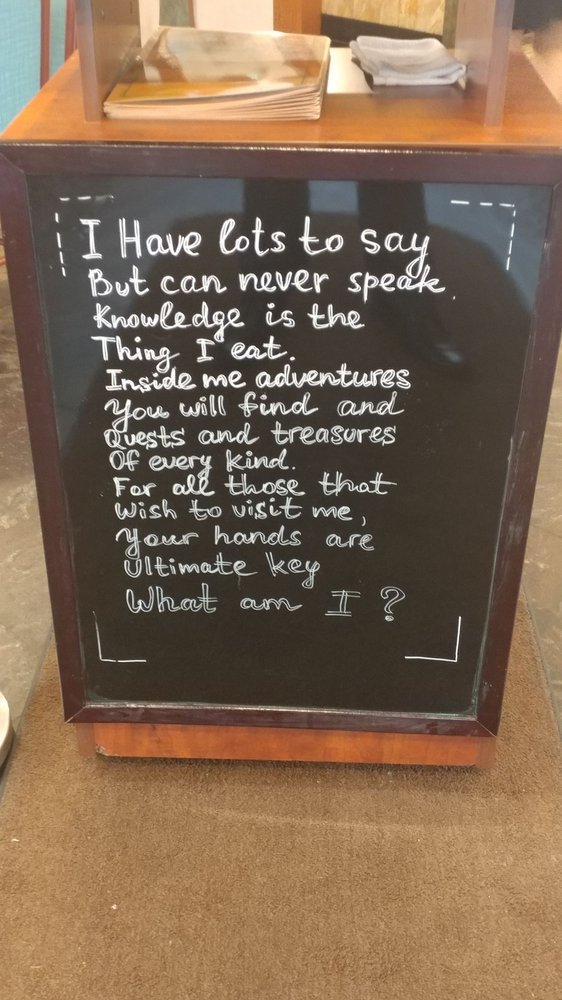 I Have lots to say
But can never speak.
Knowledge is the
Thing I eat.
Inside me adventures
You will find and
Quests and treasures
Of every kind.
For all those that
Wish to visit me,
Your hands are
Ultimate key
What am I ?